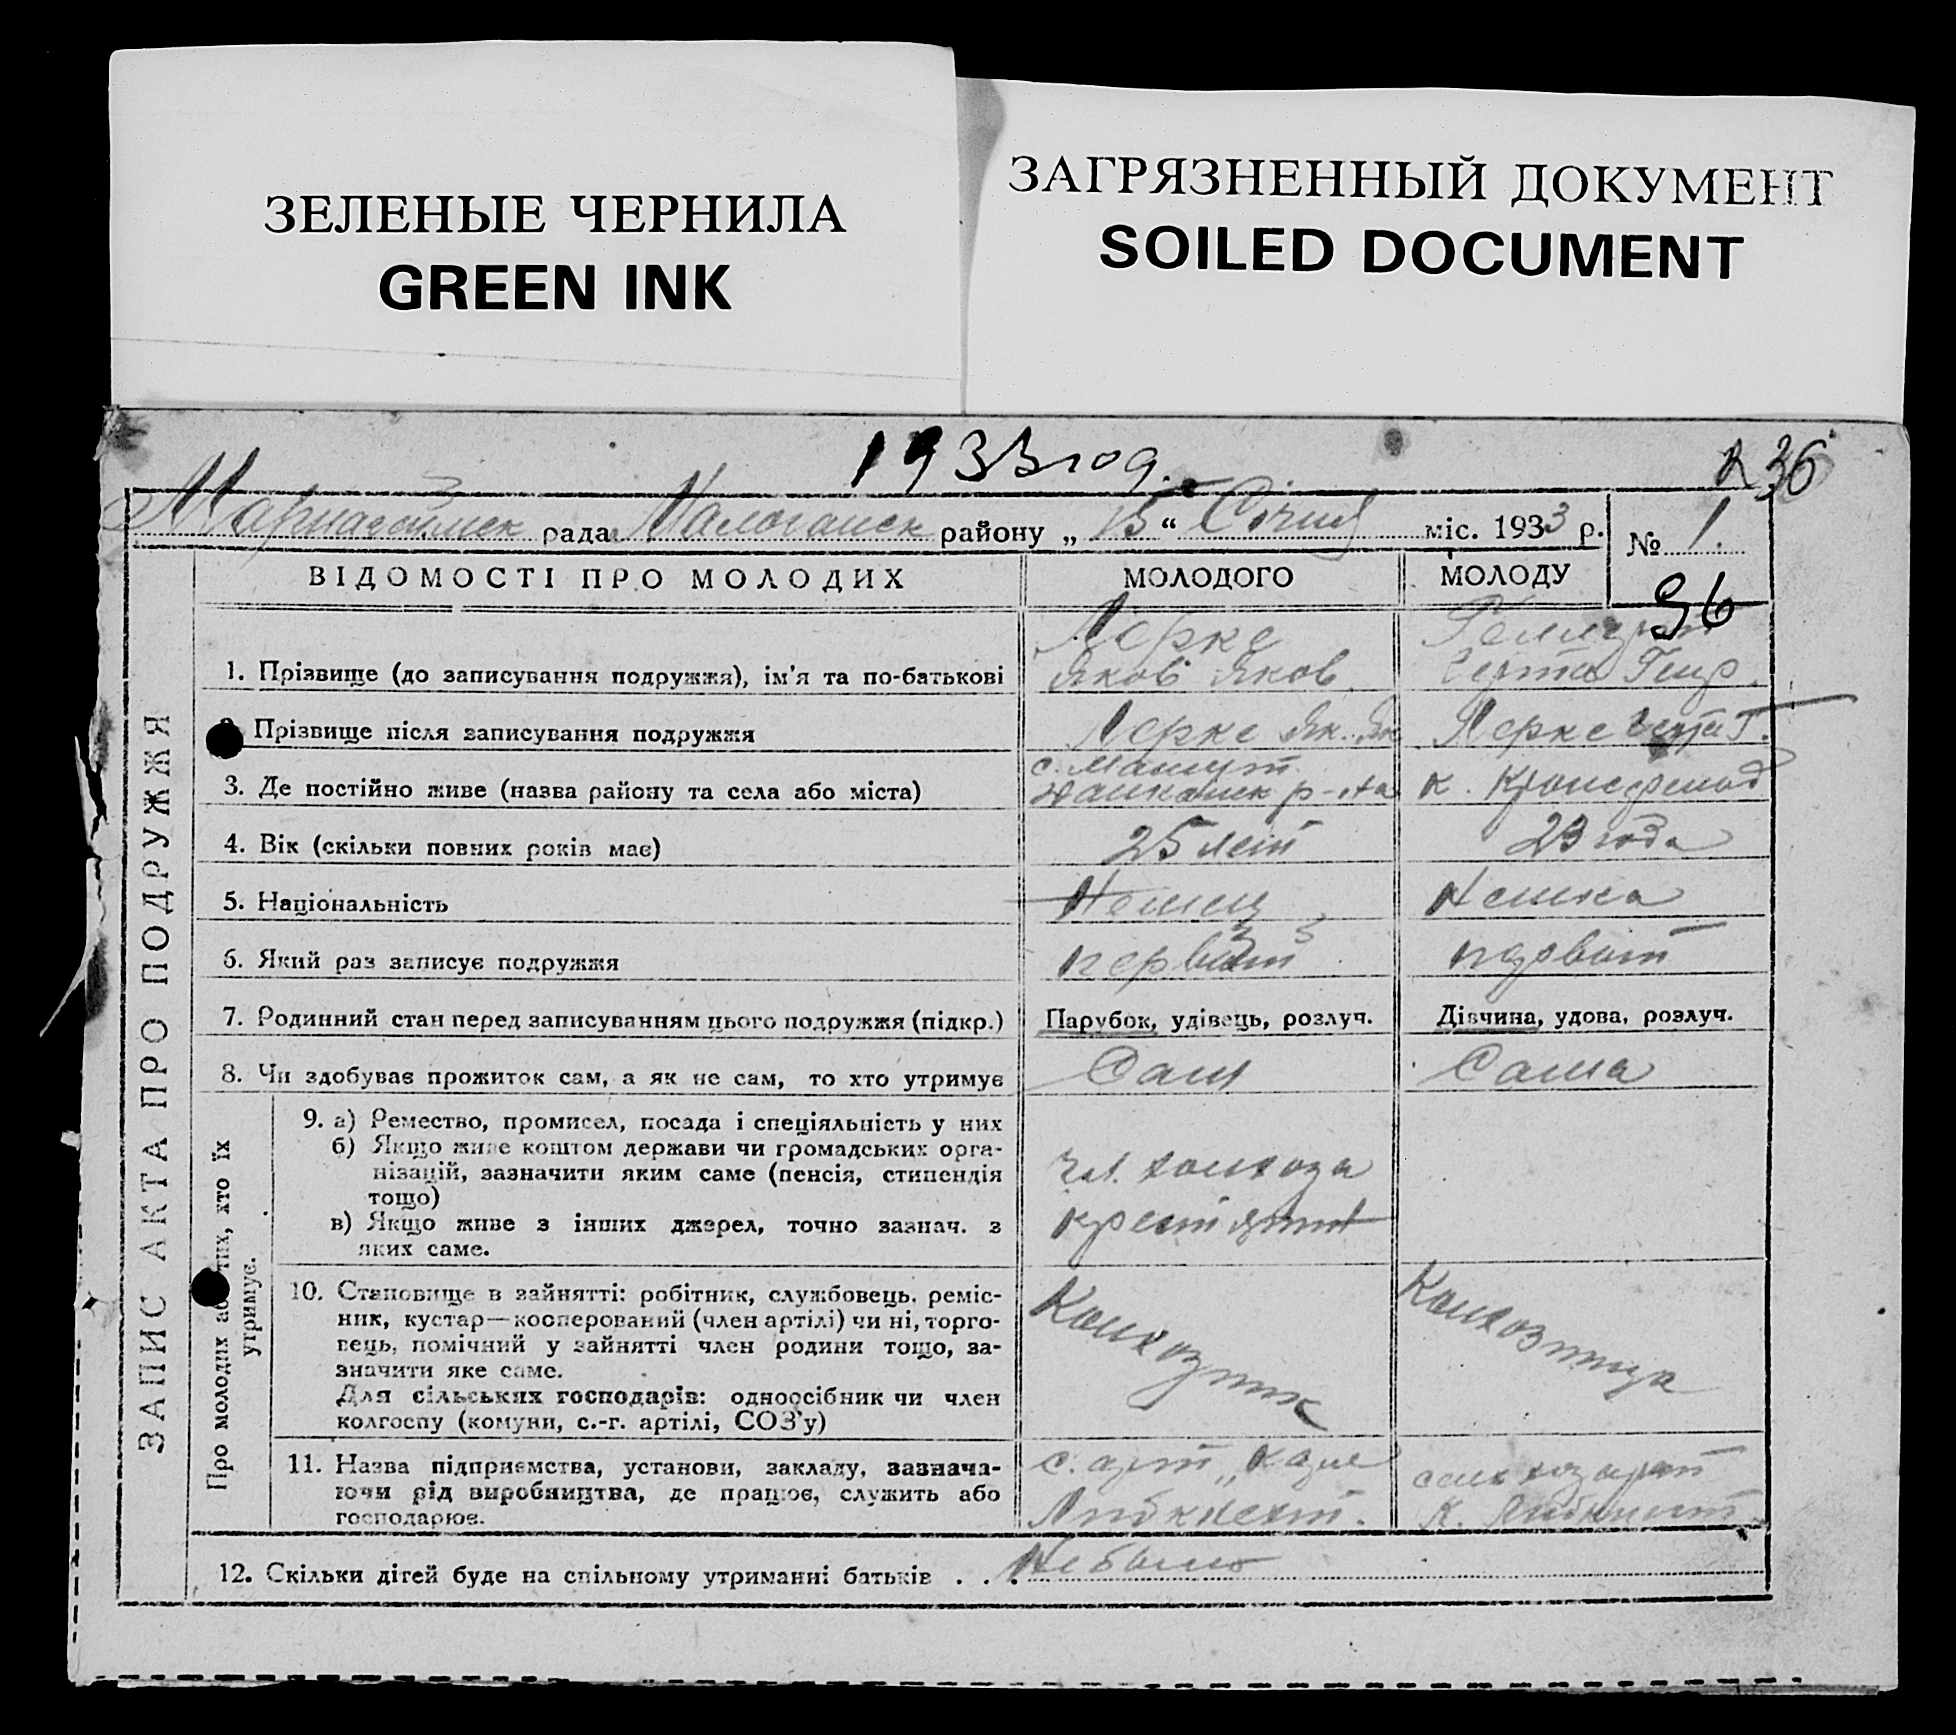 ЗЕЛЕНЫЕ ЧЕРНИЛА
GREEN INK
ЗАГРЯЗНЕННЫЙ ДОКУМЕНТ
SOILED DOCUMENT
1933 год.
36
рада район​у „15“ Січня міс. 1933 р.
№ 1.
36
ЗАПИС АКТА ПРО ПОДРУЖЖЯ
ВІДОМОСТІ ПРО МОЛОДИХ МОЛОДОГО МОЛОДУ
1. Прізвище (до записування подружжя), ім'я та по-батькові
Лерке
Яков Яков. Герта Генр.
2. Прізвище після записування подружжя Лерке Як. Як. Лерке Герта Г.
3. Де постійно живе (назва району та села або міста)
р-на к.
4. Вік (скільки повних років має) 25 лет 23 года
5. Національність Немец Немка
6. Який раз записує подружжя первый первый
7. Родинний стан перед записуванням цього подружжя (підкр.) Парубок, удівець, розлуч. Дівчина, удова, розлуч.
8. Чи здобуває прожиток сам, а як не сам, то хто утримує Сам Сама
Про молодих або тих, хто їх утримує.
9. а) Ремество, промисел, посада і спеціяльність у них
б) Якщо живе коштом держави чи громадських орга-
нізацій, зазначити яким саме (пенсія, стипендія
тощо)
в) Якщо живе з інших джерел, точно зазнач. з
яких саме.
чл. колхоза
10. Становище в зайнятті: робітник, службовець, реміс-
ник, кустар—кооперований (член артілі) чи ні, торго-
вець, помічний у зайнятті член родини тощо, за-
значити яке саме.
Для сільських господарів: одноосібник чи член
колгоспу (комуни, с.-г. артілі, СОЗ'у)
Колхозник Колхозница
11. Назва підприємства, установи, закладу, зазнача-
ючи рід виробництва, де працює, служить або
господарює.
с. арт. „Карл
Либкнехт. К. Либкнехт.
12. Скільки дітей буде на спільному утриманні батьків . . . Не было